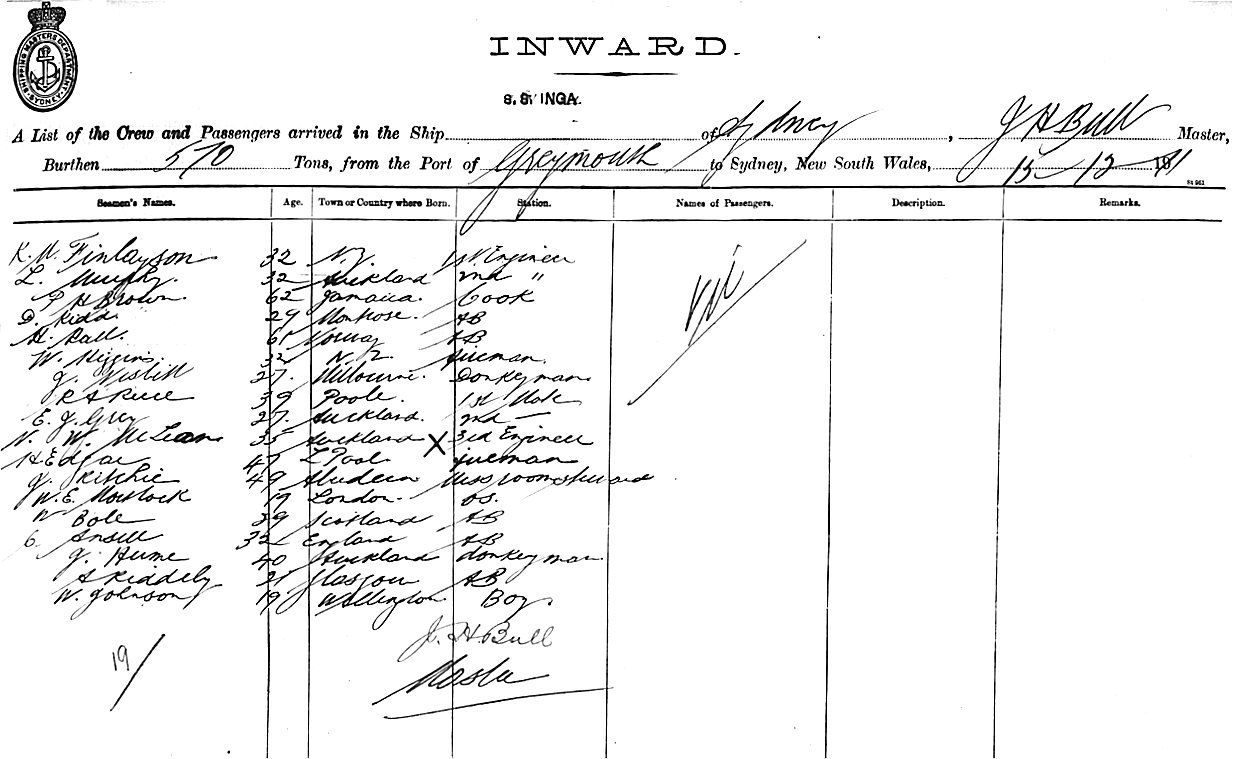 SHIPPING MASTERS DEPARTMENT SYDNEY
INWARD.
S.S. INGA.
A List of the Crew and Passengers arrived in the Ship of Sydney, J H Bull Master,
Burthen 570 Tons, from the Port of Greymouth to Sydney, New South Wales, 15-12-1911
St 961
Seamen's Names. Age. Town or Country where Born. Station. Names of Passengers. Description. Remarks.
K. M. Finlayson 32 N.Z. 1st Engineer
L. Murphy. 32 Auckland 2nd "
H Brown. 62 Jamaica. Cook
D. Kidd 29 Montrose. AB
61 Norway AB
W. Higgins. 32 N.Z. Fireman.
J. Nisbitt 27. Melbourne. Donkeyman
39 Poole. 1st Mate
E. J. Grey 27. Auckland. 2nd —
N. W. McLean 35 Auckland X 3rd Engineer
H Edgar 47 L'Pool Fireman
J. Ritchie 49 Aberdeen Messroom steward
W. E. Mortlock 19 London. OS.
W Bole 39 Scotland AB
C. Ansell 32 England AB
J. Hume 40 Auckland donkeyman
A Kiddely 21 Glasgow AB
W. Johnson 19 Wellington Boy.
Nil
J. H. Bull
Master
19/